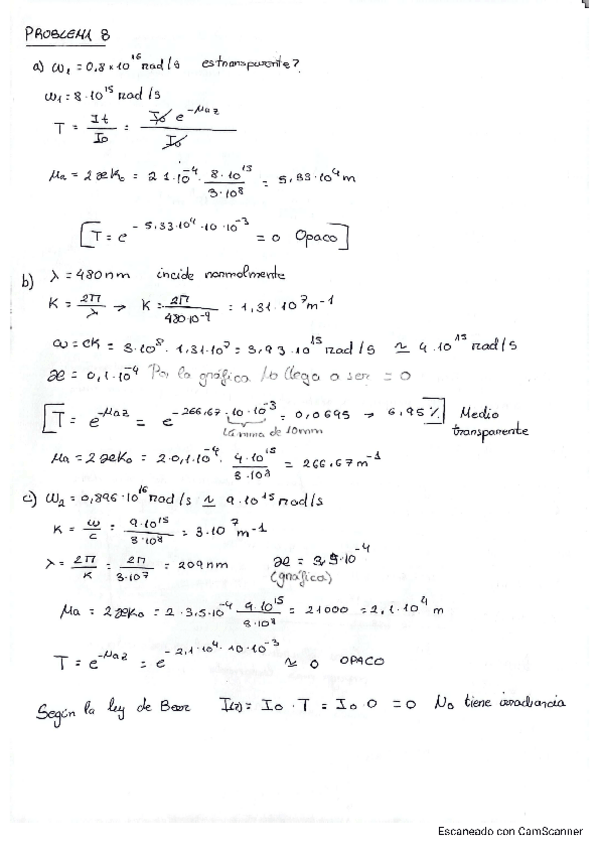 PROBLEMA 8
a) ω₁ = 0.8 × 10^16 rad/s es transparente?
ω₁ = 8·10^15 rad/s
T = It/I₀ = I₀ e^(-μa z) / I₀
μa = 2 æ K₀ = 2 · 10^-4 · 8·10^15 / 3·10^8 = 5,33·10^4 m
[T = e^(-5,33·10^4·10·10^-3) = 0 Opaco]
b) λ = 480 nm incide normalmente
K = 2π/λ → K = 2π / 480·10^-9 = 1,31·10^7 m^-1
ω = cK = 3·10^8 · 1,31·10^7 = 3,93·10^15 rad/s ≃ 4·10^15 rad/s
æ = 0,1·10^-4 Por la gráfica / o llega a ser = 0
[T = e^(-μa z) = e^(-266,67·10·10^-3) = 0,0695 → 6,95%] Medio transparente
lámina de 10mm
μa = 2 æ K₀ = 2·0,1·10^-4 · 4·10^15 / 3·10^8 = 266,67 m^-1
c) ω₂ = 0,896·10^16 rad/s ≃ 9·10^15 rad/s
K = ω/c = 9·10^15 / 3·10^8 = 3·10^7 m^-1
λ = 2π/K = 2π / 3·10^7 = 209 nm æ = 3,5·10^-4
(gráfica)
μa = 2 æ K₀ = 2·3,5·10^-4 9·10^15 / 3·10^8 = 21000 = 2,1·10^4 m
T = e^(-μa z) = e^(-2,1·10^4·10·10^-3) ≃ 0 OPACO
Según la ley de Beer I(z) = I₀ · T = I₀ · 0 = 0 No tiene irradiancia
Escaneado con CamScanner